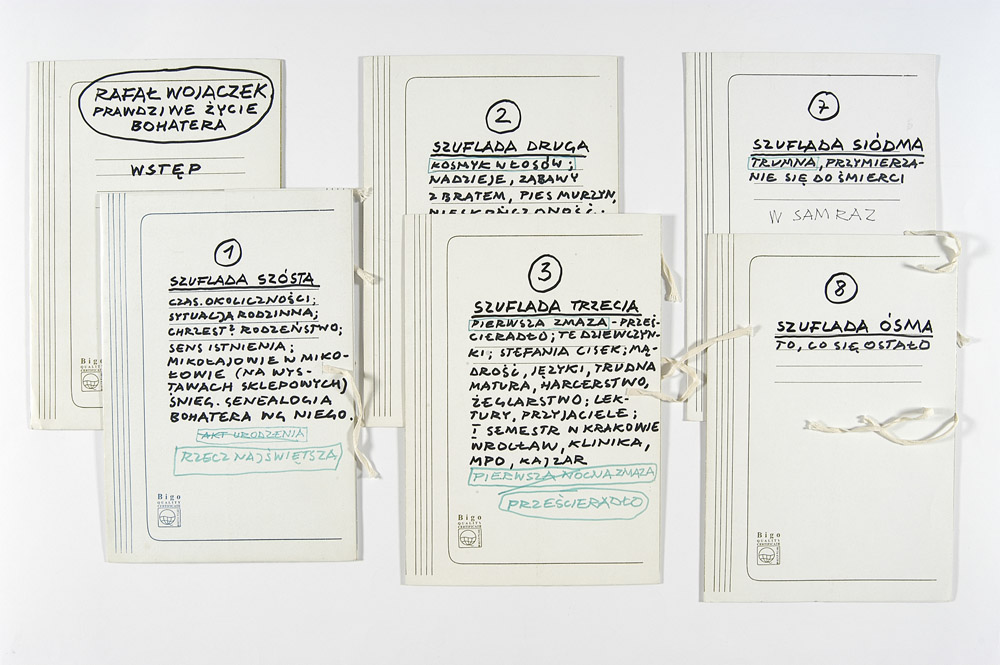 RAFAŁ WOJACZEK
PRAWDZIWE ŻYCIE
BOHATERA
WSTĘP
Bigo
1
SZUFLADA SZÓSTA
CZAS. OKOLICZNOŚCI;
SYTUACJA RODZINNA;
CHRZEST? RODZEŃSTWO;
SENS ISTNIENIA;
MIKOŁAJOWIE W MIKO-
ŁOWIE (NA WYS-
TAWACH SKLEPOWYCH)
ŚNIEG. GENEALOGIA
BOHATERA WG NIEGO.
AKT URODZENIA
RZECZ NAJŚWIĘTSZA
Bigo
QUALITY
CERTIFICATE
2
SZUFLADA DRUGA
KOSMYK WŁOSÓW;
NADZIEJE, ZABAWY
Z BRATEM, PIES MURZYN,
NIESKOŃCZONOŚĆ;
3
SZUFLADA TRZECIA
PIERWSZA ZMAZA - PRZEŚ-
CIERADŁO; TE DZIEWCZYN-
KI; STEFANIA CISEK; MĄ-
DROŚĆ, JĘZYKI, TRUDNA
MATURA, HARCERSTWO,
ŻEGLARSTWO; LEK-
TURY, PRZYJACIELE;
I SEMESTR W KRAKOWIE
WROCŁAW, KLINIKA,
MPO, KAJZAR
PIERWSZA NOCNA ZMAZA
PRZEŚCIERADŁO
Bigo
QUALITY
CERTIFICATE
7
SZUFLADA SIÓDMA
TRUMNA, PRZYMIERZA-
NIE SIĘ DO ŚMIERCI
W SAM RAZ
8
SZUFLADA ÓSMA
TO, CO SIĘ OSTAŁO
Bigo
QUALITY
CERTIFICATE